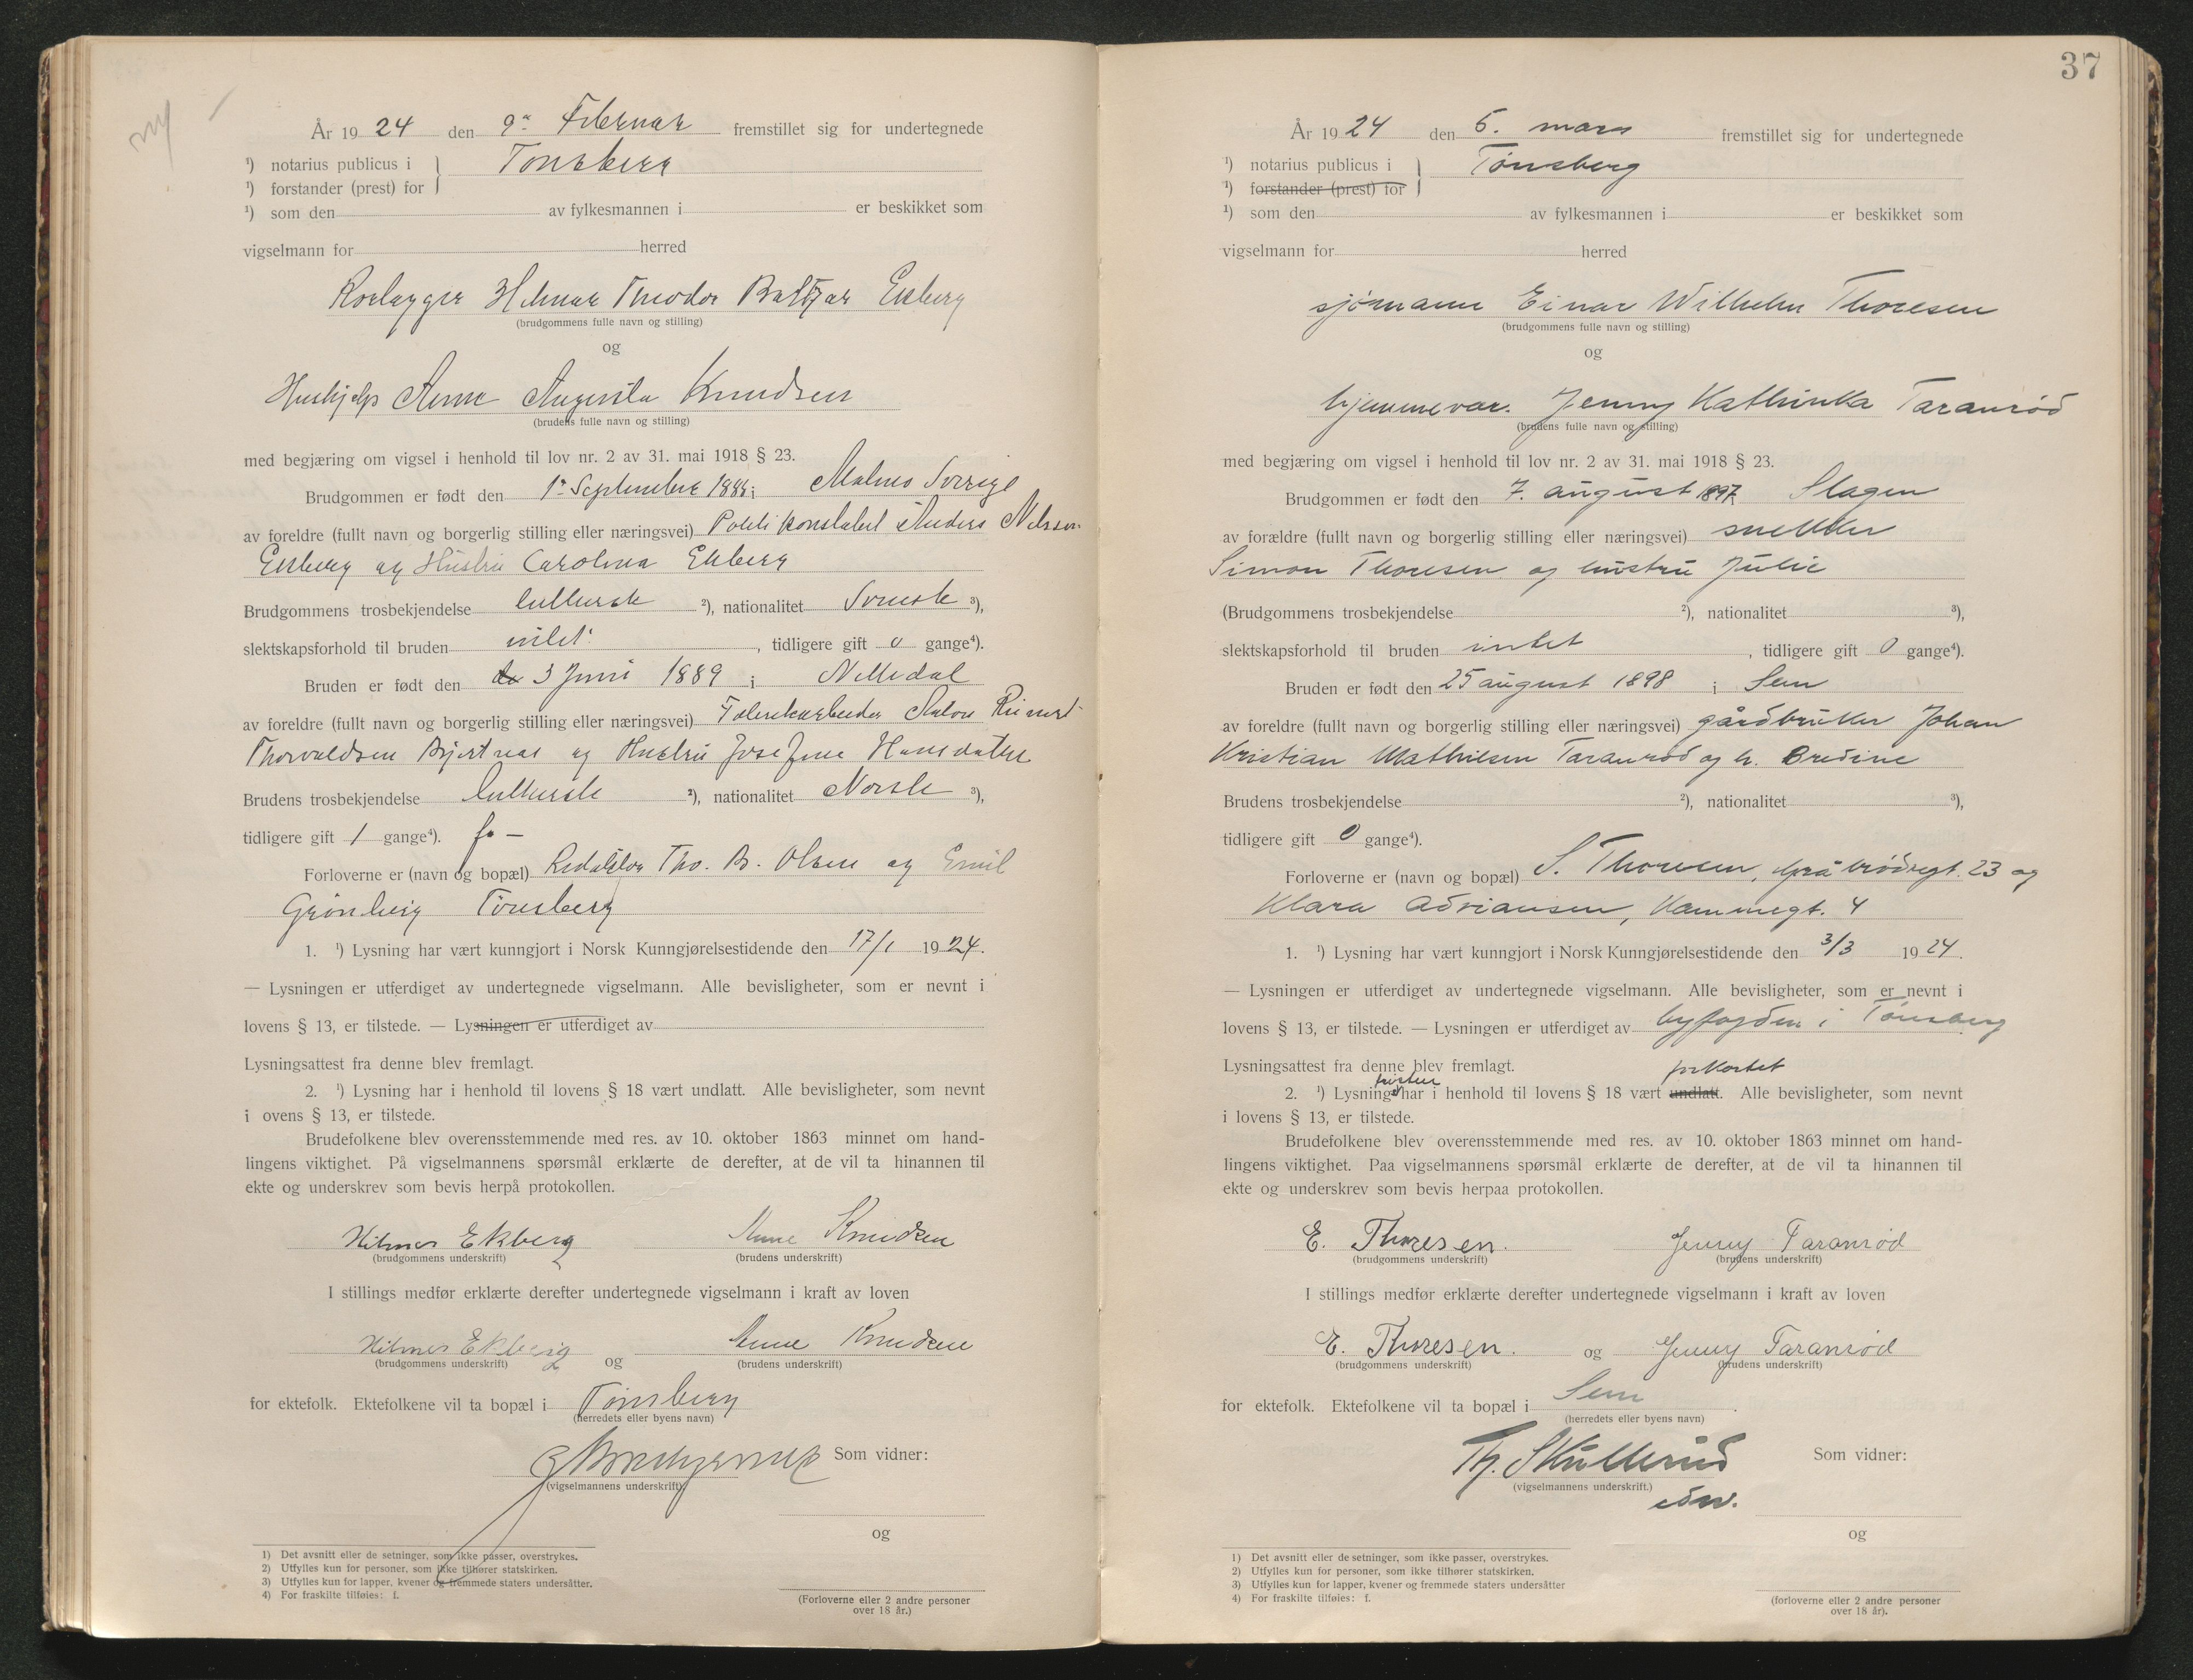 År 1924 den 9de Februar fremstillet sig for undertegnede
¹) notarius publicus i } Tønsberg
¹) forstander (prest) for
¹) som den av fylkesmannen i er beskikket som
vigselmann for herred
Rørlægger Hilmar Theodor Baltzar Ekberg
(brudgommens fulle navn og stilling)
og
Hushjelp Anne Augusta Knudsen
(brudens fulle navn og stilling)
med begjæring om vigsel i henhold til lov nr. 2 av 31. mai 1918 § 23.
Brudgommen er født den 1. September i Malmø Sverige
av foreldre (fullt navn og borgerlig stilling eller næringsvei) Politikonstabel Anders Nilsson
Ekberg og Hustru Carolina Ekberg
Brudgommens trosbekjendelse luthersk ²), nationalitet Svensk ³),
slektskapsforhold til bruden intet , tidligere gift 0 gange⁴).
Bruden er født den 3 Juni 1889 i Nittedal
av foreldre (fullt navn og borgerlig stilling eller næringsvei) Fabrikarbeider Anton
Thorvaldsen og Hustru Josefine Hansdatter
Brudens trosbekjendelse luthersk ²), nationalitet Norsk ³),
tidligere gift 1 gange⁴). f. —
Forloverne er (navn og bopæl) Redaktør Tho. B. Olsen og Emil
Grönberg Tønsberg
1. ¹) Lysning har vært kunngjort i Norsk Kunngjørelsestidende den 17/1 1924.
— Lysningen er utferdiget av undertegnede vigselmann. Alle bevisligheter, som er nevnt i
lovens § 13, er tilstede. — Lysningen er utferdiget av
Lysningsattest fra denne blev fremlagt.
2. ¹) Lysning har i henhold til lovens § 18 vært undlatt. Alle bevisligheter, som nevnt
i ovens § 13, er tilstede.
Brudefolkene blev overensstemmende med res. av 10. oktober 1863 minnet om hand-
lingens viktighet. På vigselmannens spørsmål erklærte de derefter, at de vil ta hinannen til
ekte og underskrev som bevis herpå protokollen.
Hilmer Ekberg Anne Knudsen
(brudgommens underskrift) (brudens underskrift)
I stillings medfør erklærte derefter undertegnede vigselmann i kraft av loven
Hilmer Ekberg og Anne Knudsen
(brudgommens underskrift) (brudens underskrift)
for ektefolk. Ektefolkene vil ta bopæl i Tønsberg
(herredets eller byens navn)
Som vidner:
(vigselmannens underskrift)
og
1) Det avsnitt eller de setninger, som ikke passer, overstrykes.
2) Utfylles kun for personer, som ikke tilhører statskirken.
3) Utfylles kun for lapper, kvener og fremmede staters undersåtter.
4) For fraskilte tilføies: f.
(Forloverne eller 2 andre personer
over 18 år.)
37
År 1924 den 5. mars fremstillet sig for undertegnede
¹) notarius publicus i } Tønsberg
¹) forstander (prest) for
¹) som den av fylkesmannen i er beskikket som
vigselmann for herred
sjømann Einar Wilhelm Thoresen
(brudgommens fulle navn og stilling)
og
hjemmevær. Jenny Kathinka Taranrød
(brudens fulle navn og stilling)
med begjæring om vigsel i henhold til lov nr. 2 av 31. mai 1918 § 23.
Brudgommen er født den 7. august 1897 Slagen
av forældre (fullt navn og borgerlig stilling eller næringsvei) snekker
Simon Thoresen og hustru Julie
(Brudgommens trosbekjendelse ²), nationalitet ³),
slektskapsforhold til bruden intet , tidligere gift 0 gange⁴).
Bruden er født den 25 august 1898 i Sem
av foreldre (fullt navn og borgerlig stilling eller næringsvei) gårdbruker Johan
Kristian Mathisen Taranrød og h. Bredine
Brudens trosbekjendelse ²), nationalitet ³),
tidligere gift 0 gange⁴).
Forloverne er (navn og bopæl) S. Thoresen, Gråbrødregt. 23 og
Klara Adriansen, Kammegt. 4
1. ¹) Lysning har vært kunngjort i Norsk Kunngjørelsestidende den 3/3 1924.
— Lysningen er utferdiget av undertegnede vigselmann. Alle bevisligheter, som er nevnt i
lovens § 13, er tilstede. — Lysningen er utferdiget av byfogden i Tønsberg
Lysningsattest fra denne blev fremlagt.
fristen forkortet
2. ¹) Lysnings har i henhold til lovens § 18 vært undlatt. Alle bevisligheter, som nevnt
i lovens § 13, er tilstede.
Brudefolkene blev overensstemmende med res. av 10. oktober 1863 minnet om hand-
lingens viktighet. Paa vigselmannens spørsmål erklærte de derefter, at de vil ta hinannen til
ekte og underskrev som bevis herpaa protokollen.
E. Thoresen. Jenny Taranrød
(brudgommens underskrift) (brudens underskrift)
I stillings medfør erklærte derefter undertegnede vigselmann i kraft av loven
E. Thoresen. og Jenny Taranrød
(brudgommens underskrift) (brudens underskrift)
for ektefolk. Ektefolkene vil ta bopæl i Sem .
(herredets eller byens navn)
Th. Skullerud Som vidner:
(vigselmannens underskrift.)
edw.
og
1) Det avsnitt eller de setninger, som ikke passer, overstrykes.
2) Utfylles kun for personer, som ikke tilhører statskirken.
3) Utfylles kun for lapper, kvener og fremmede staters undersåtter
4) For fraskilte tilføies: f.
(forloverne eller 2 andre personer
over 18 år).